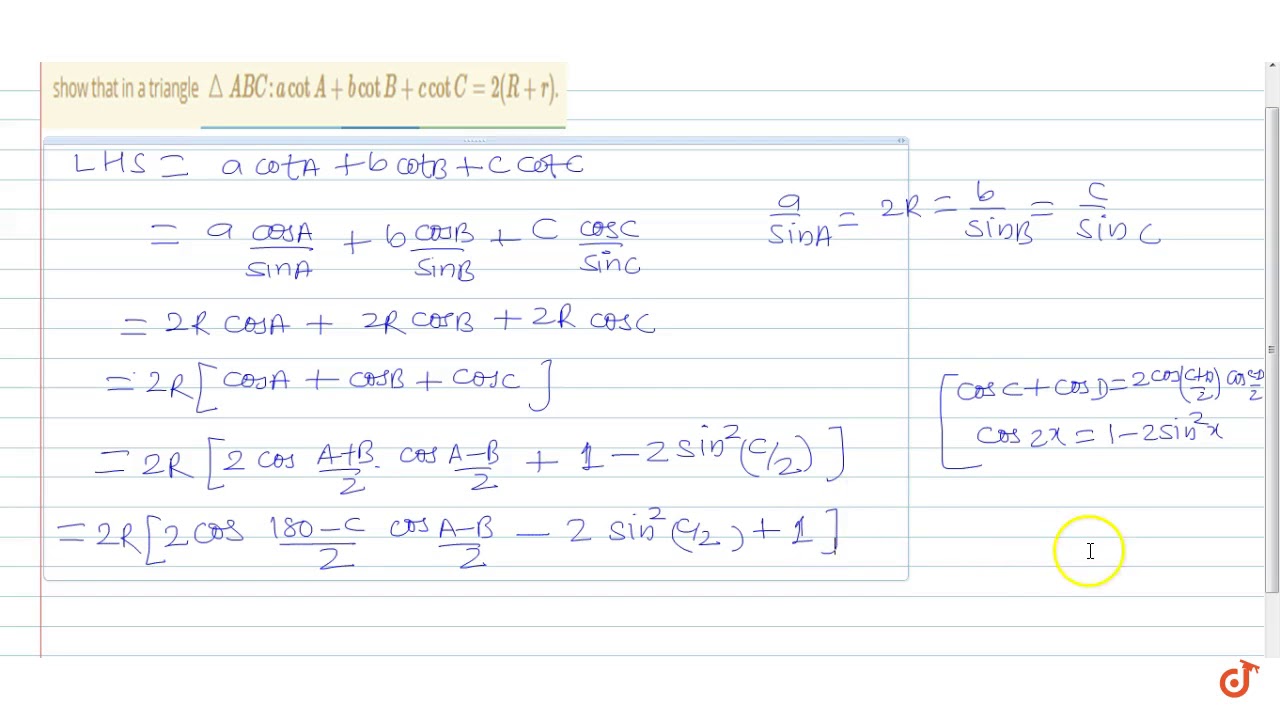 show that in a triangle △ ABC: a cot A + b cot B + c cot C = 2(R + r).
LHS = a cotA + b cotB + c cotC
= a cosA/sinA + b cosB/sinB + C cosC/sinC
a/sinA = 2R = b/sinB = c/sinC
= 2R cosA + 2R cosB + 2R cosC
= 2R [cosA + cosB + cosC]
[cosC + cosD = 2cos(C+D/2) cos C-D/2
cos2x = 1 - 2sin²x
= 2R [2 cos A+B/2 . cos A-B/2 + 1 - 2 sin²(C/2)]
= 2R [2 cos 180-C/2 cos A-B/2 - 2 sin²(C/2) + 1]